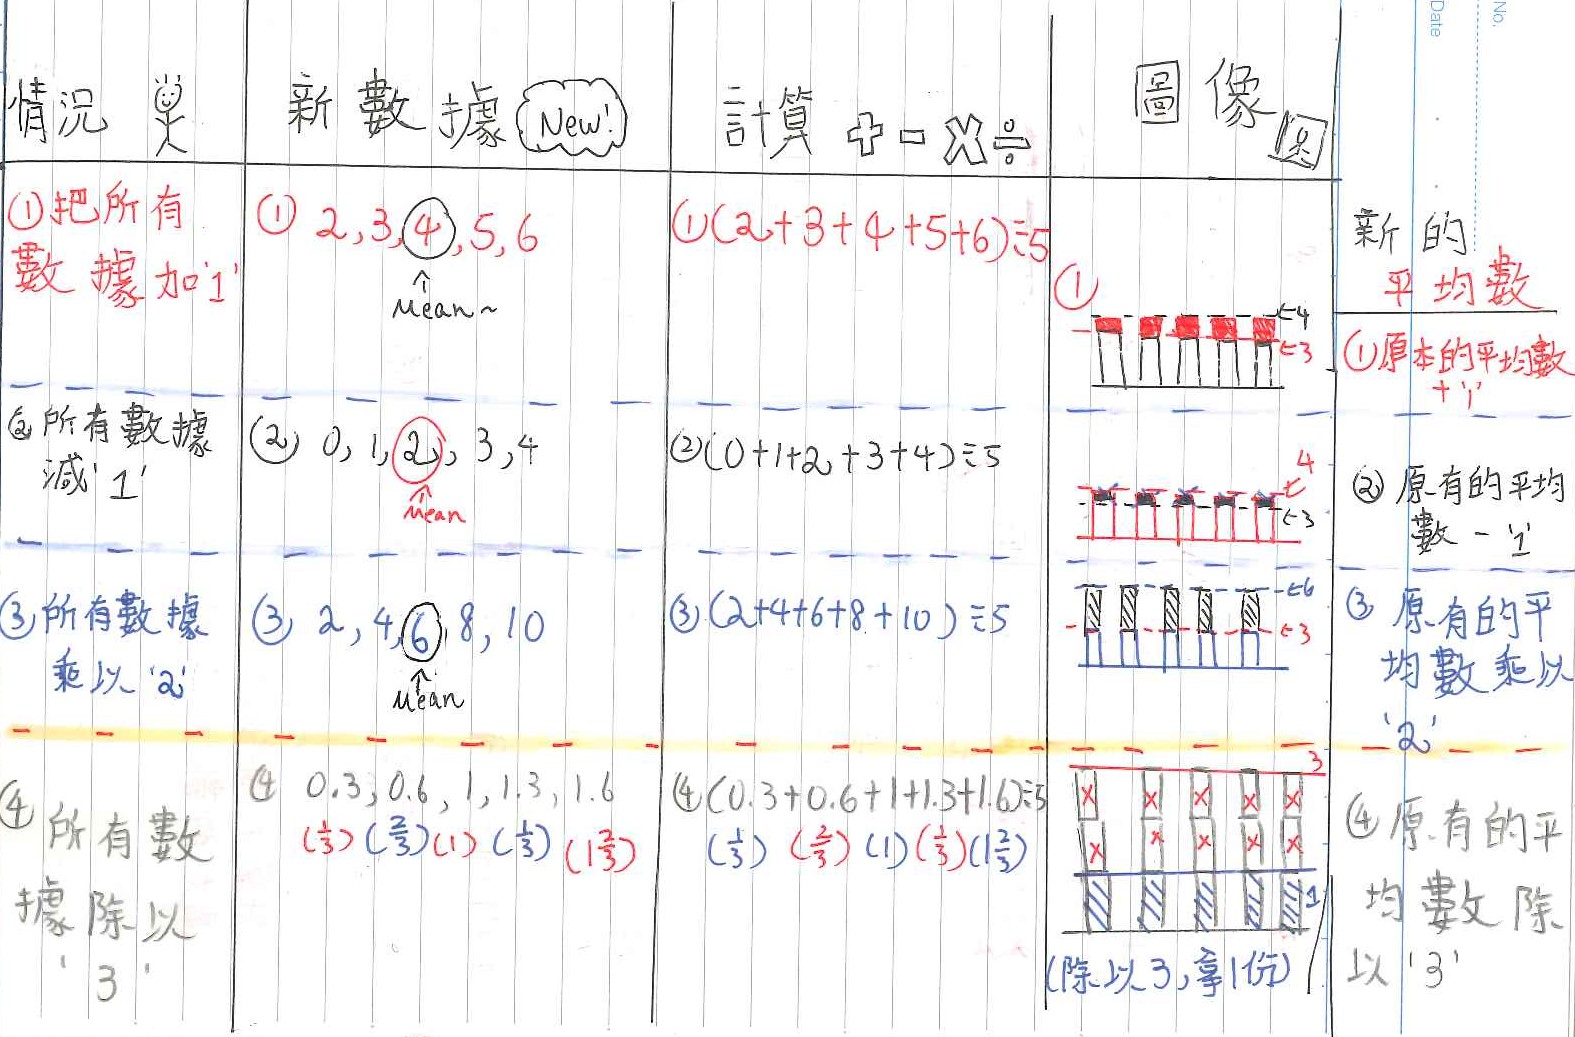 No.
Date
情況
新數據 New!
計算 + - × ÷
圖像
新的
平均數
①把所有
數據加'1'
① 2, 3, 4, 5, 6
↑
Mean~
①(2+3+4+5+6)÷5
①
←4
←3
①原本的平均數
+'1'
②所有數據
減'1'
② 0, 1, 2, 3, 4
↑
Mean
②(0+1+2+3+4)÷5
4
←3
②原有的平均
數-'1'
③所有數據
乘以'2'
③ 2, 4, 6, 8, 10
↑
Mean
③(2+4+6+8+10)÷5
←6
←3
③原有的平
均數乘以
'2'
④所有數
據除以
'3'
④ 0.3, 0.6, 1, 1.3, 1.6
(1/3) (2/3) (1) (1/3) (1 2/3)
④(0.3+0.6+1+1.3+1.6)÷5
(1/3) (2/3) (1) (1/3) (1 2/3)
3
1
(除以3,拿1份)
④原有的平
均數除
以'3'